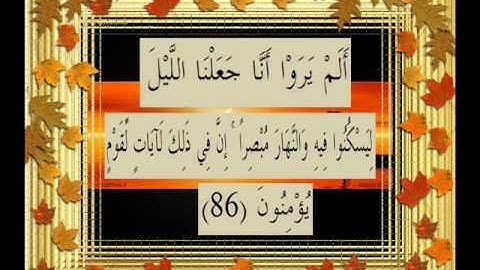 أَلَمْ يَرَوْا أَنَّا جَعَلْنَا اللَّيْلَ
لِيَسْكُنُوا فِيهِ وَالنَّهَارَ مُبْصِرًا ۚ إِنَّ فِي ذَٰلِكَ لَآيَاتٍ لِّقَوْمٍ
يُؤْمِنُونَ (86)